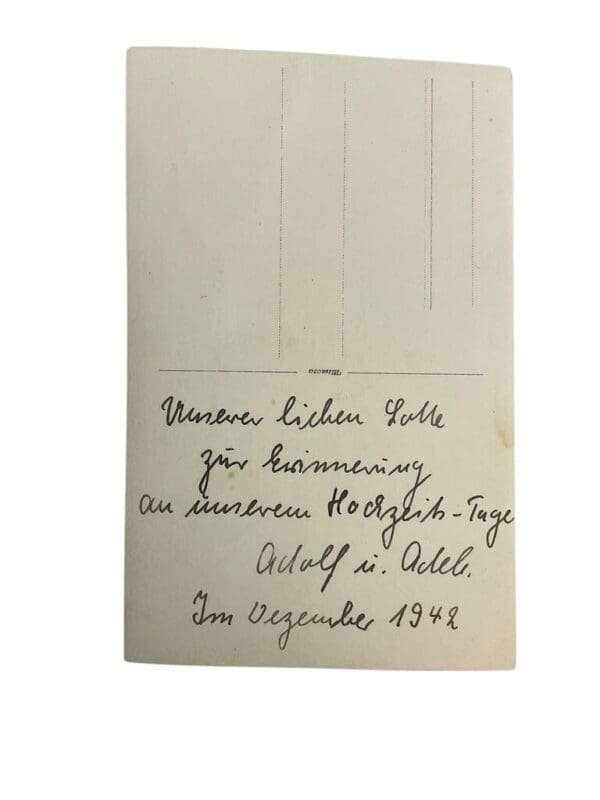 Mimosa
Unserer lieben Lotte
zur Erinnerung
an unserem Hochzeits-Tage
Adolf u. Adele.
Im Dezember 1942